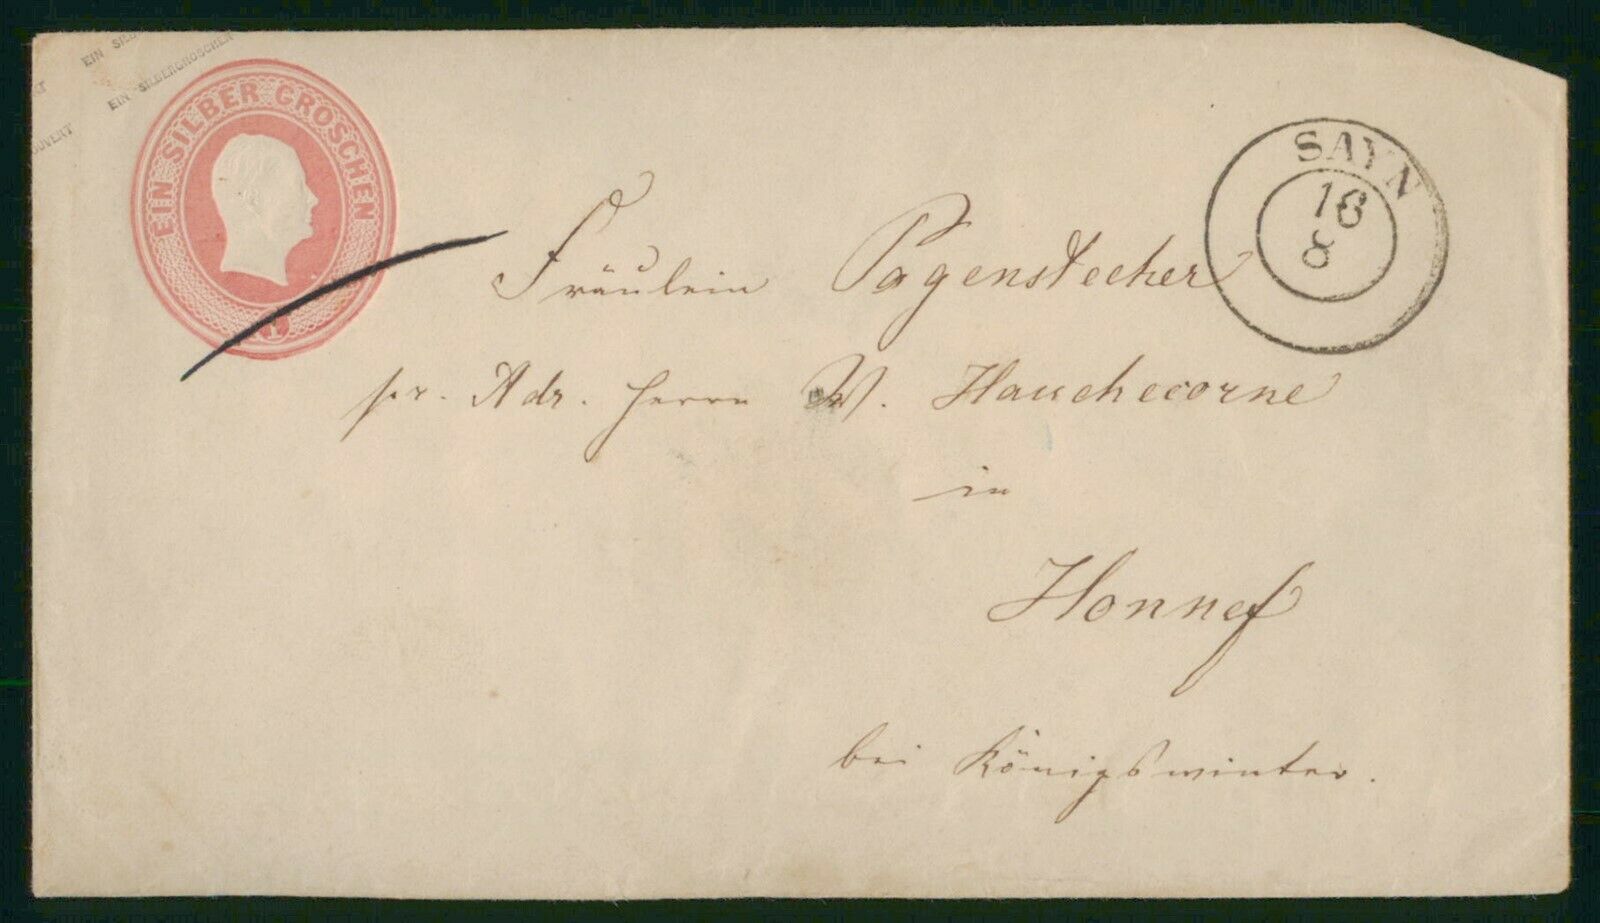 EIN SILBERGROSCHEN
EIN SILBER GROSCHEN
1
SAYN
16
8
Fräulein Pagenstecher
pr. Adr. Herrn W. Hauchecorne
in
Honnef
bei Königswinter.